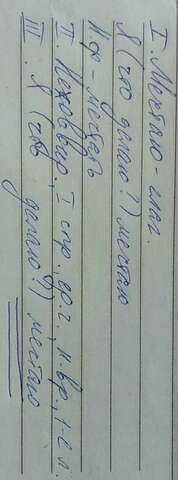 I. Мечтаю - глаг.
Я (что делаю?) мечтаю
Н.ф - мечтать
II. Несов.вид, I спр., ед.ч., н.вр., 1-е л.
III. Я (что делаю?) мечтаю